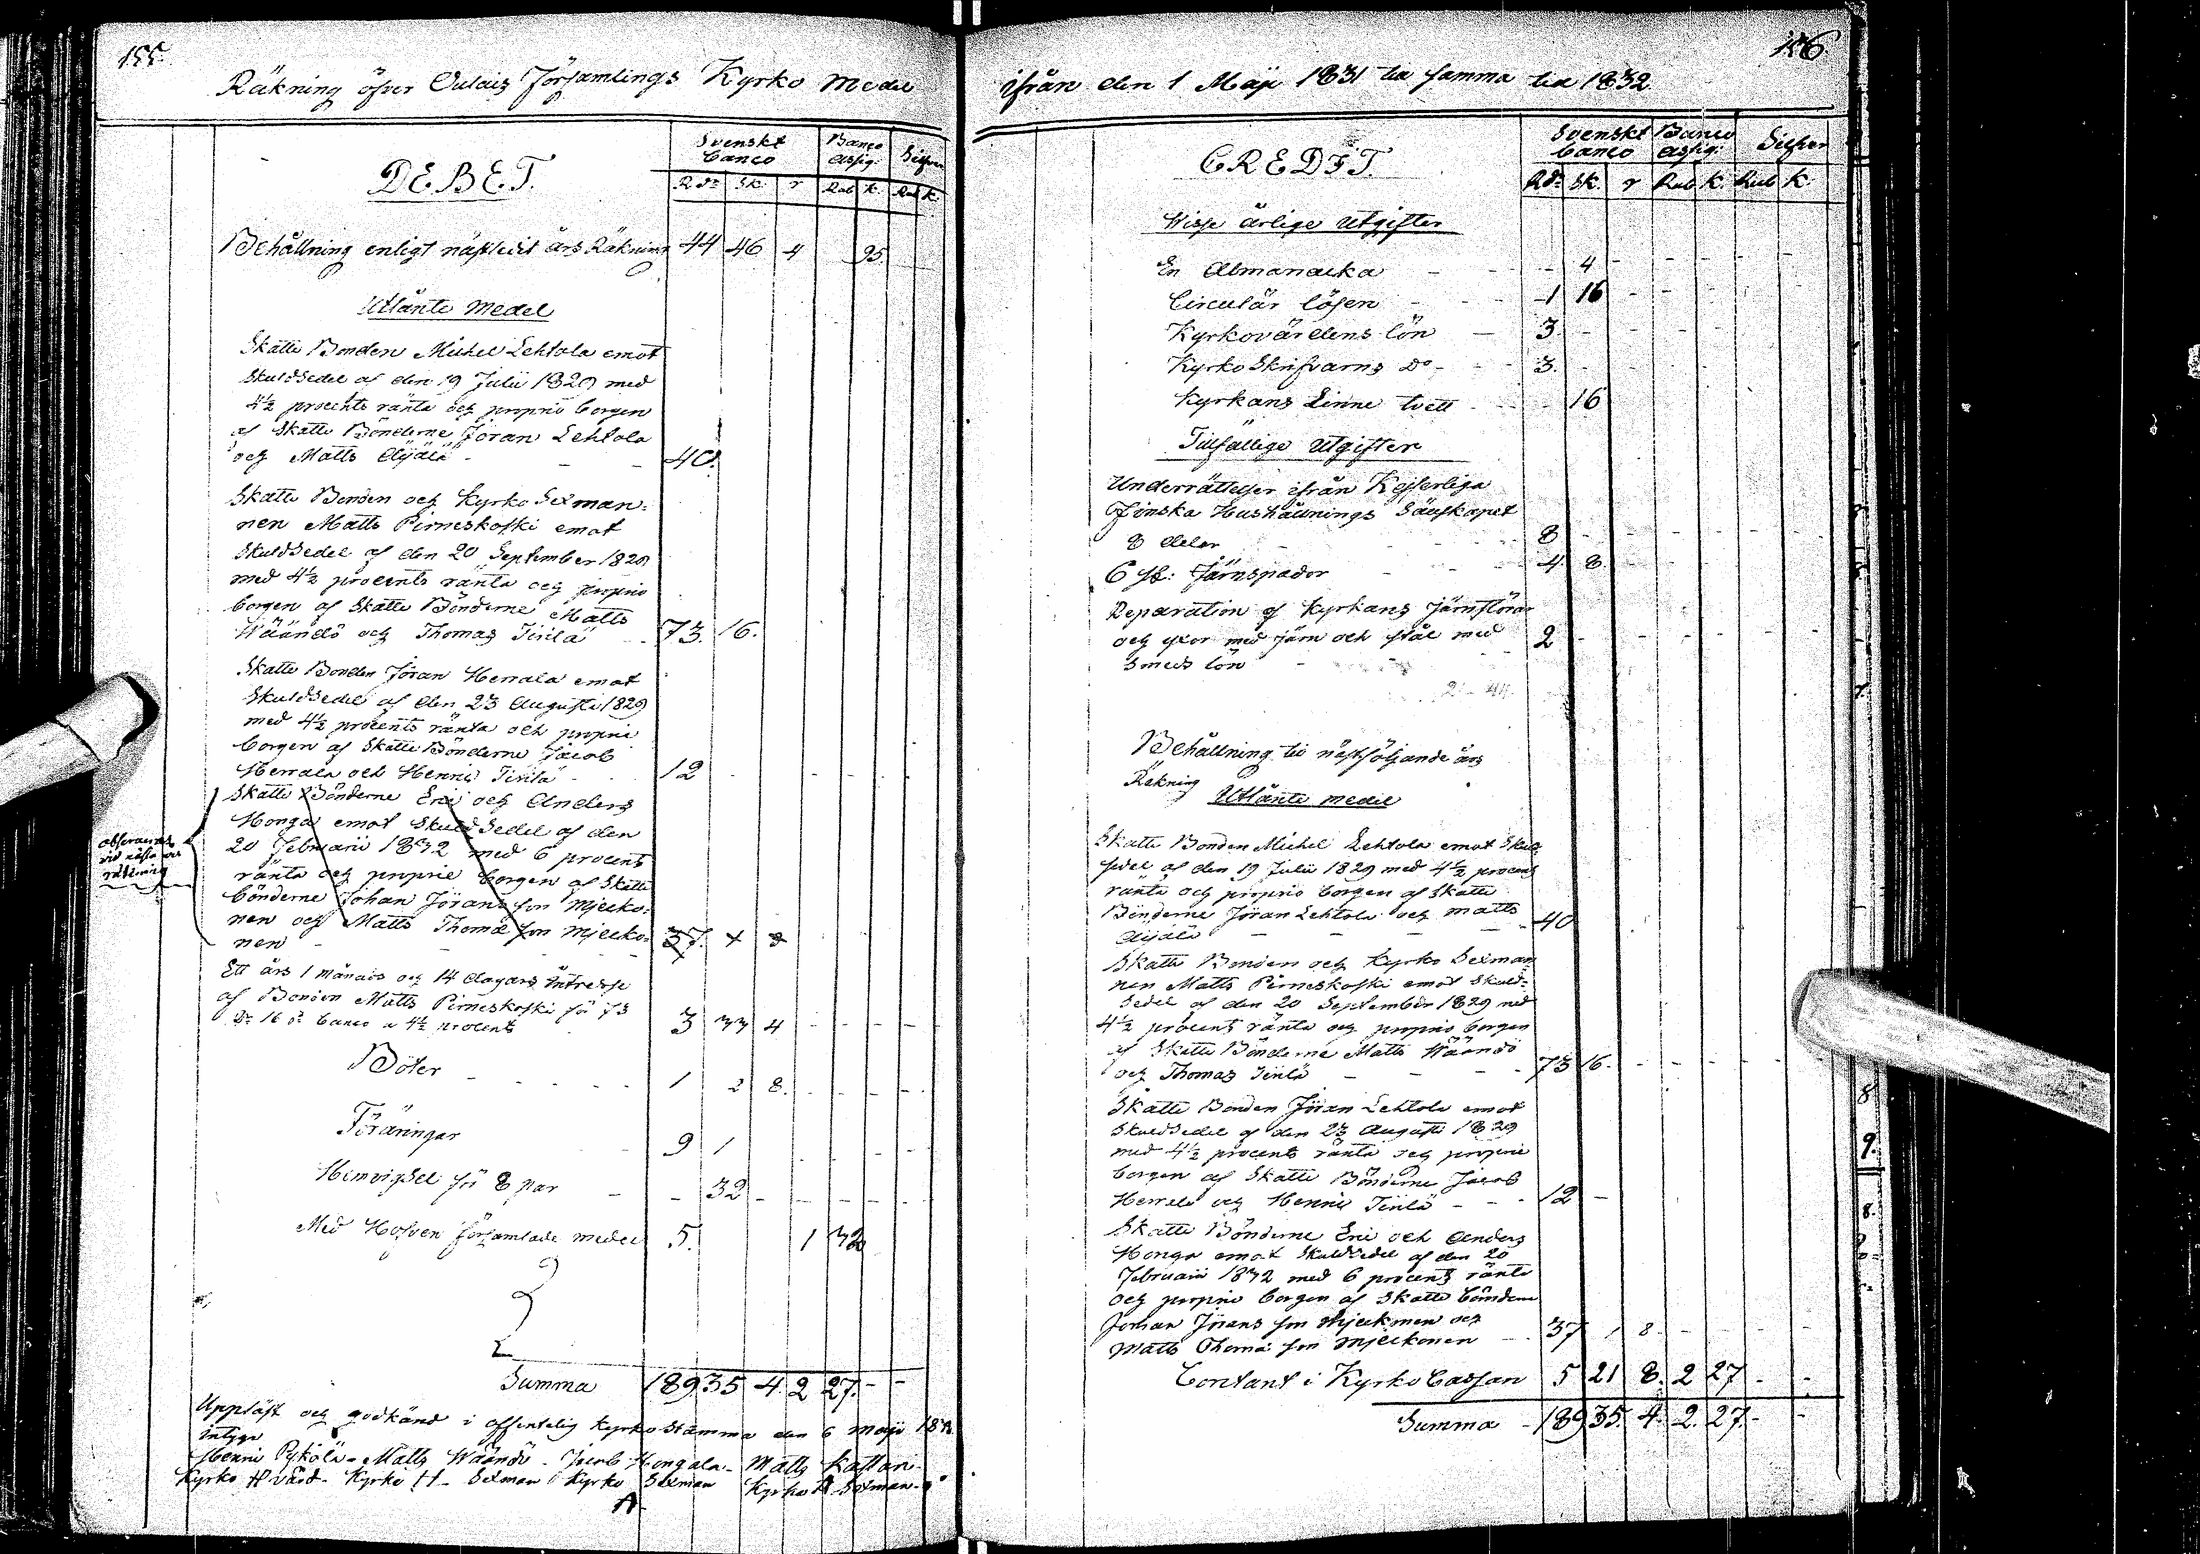 155.
Räkning öfver Oulais Församlings Kyrko Medel
DEBET.
Svenskt Banco
Banco Assig:
Silfver
Rdr Sk. r Rub K. Rub K.
Behållning enligt nästledit års Räkning 44 46 4 95
Utlänte Medel
Skatte Bonden Michel Lehtola emot
Skuldsedel af den 19 Julii 1829 med
4½ procents ränta och proprie borgen
af Skatte Bönderne Jöran Lehtola
och Matts Äijälä - - - 40.
Skatte Bonden och Kyrko Sexman-
nen Matts Pirneskoski emot
Skuldsedel af den 20 September 1829
med 4½ procents ränta och proprie
borgen af Skatte Bönderne Matts
Wäändö och Thomas Tirilä 73. 16.
Skatte Bonden Jöran Herrala emot
Skuldsedel af den 23 Augusti 1829
med 4½ procents ränta och proprie
borgen af Skatte Bönderne Jacob
Herrala och Henric Tirilä - 12 - - - - -
Skatte Bönderne Eric och Anders
Honga emot Skuldsedel af den
20 Februarii 1832 med 6 procents
ränta och proprie borgen af Skatte
bönderne Johan Jörans son Mjecko-
nen och Matts Thomæ son Mjecko-
nen - 37. 1 8
observeras
vid nästa års
räkning
Ett års 1 månads och 14 dagars Intresse
af Bonden Matts Pirneskoski för 73
Dr 16 sk banco a 4½ procent 3 33 4 - - - -
Böter - - - - - 1 2 8. - - - -
Föräringar - 9 1 - - - -
Hemvigsel för 8 par - - 32 - - - - -
Med Hofven församlade medel 5. 1 32
Summa 189 35 4. 2 27. - -
Uppläst och godkänd i offentelig Kyrko Stämma den 6 Maji 1832
intyga
Henric Pyköla - Matts Wäändö - Jacob Hongala - Matts Kastari -
Kyrko H värd - Kyrko H - Sexman Kyrko Sexman Kyrko Sexman -
156.
ifrån den 1 Maji 1831 til samma tid 1832.
CREDIT.
Svenskt Banco
Banco Assig:
Silfver
Rdr Sk. r Rub K. Rub K.
Wisse årlige Utgifter
En Almanacka - - - 4 - - - - -
Circulär lösen - - - 1 16 - - - - -
Kyrkovärdens lön - 3. - - - - - -
Kyrko Skrifvarns Do - - - 3. - - - - - -
Kyrkans Linne tvett - - 16
Tillfällige Utgifter
Underrättelser ifrån Kejserliga
Finska Hushållnings Säuskapet
8 delar - - - 8 - - - - - -
6 st: Järnspador - - - 4. 8. - - - - -
Reparation af Kyrkans Järnstörar
och yxor med järn och stål med 2 - - - - - -
Smeds lön -
21 - 44.
Behållning til nästföljande års
Räkning
Utlänte medel
Skatte Bonden Michel Lehtola emot Skuld
sedel af den 19 Julii 1829 med 4½ procent
ränta och proprie borgen af Skatte
Bönderne Jöran Lehtola och Matts 40
Äijälä - - - -
Skatte Bonden och Kyrko Sexman
nen Matts Pirneskoski emot Skuld-
Sedel af den 20 September 1829 med
4½ procent ränta och proprie borgen
af Skatte Bönderne Matts Wäändö
och Thomas Tirilä - - - 73 16. - - - - -
Skatte Bonden Jöran Lehtola emot
Skuldsedel af den 23 Augusti 1829
med 4½ procents ränta och proprie
borgen af Skatte Bönderne Jacob
Herrala och Henric Tirilä - - - 12 -
Skatte Bönderne Eric och Anders
Honga emot Skuldsedel af den 20
Februarii 1832 med 6 procents ränta
och proprie borgen af Skatte bönderne
Johan Jörans son Mjeckonen och
Matts Thomæ son Mjeckonen - 37 1 8 - - - -
Contant i Kyrko Cassan 5 21 8. 2 27 - -
Summa - 189 35. 4. 2. 27. - -